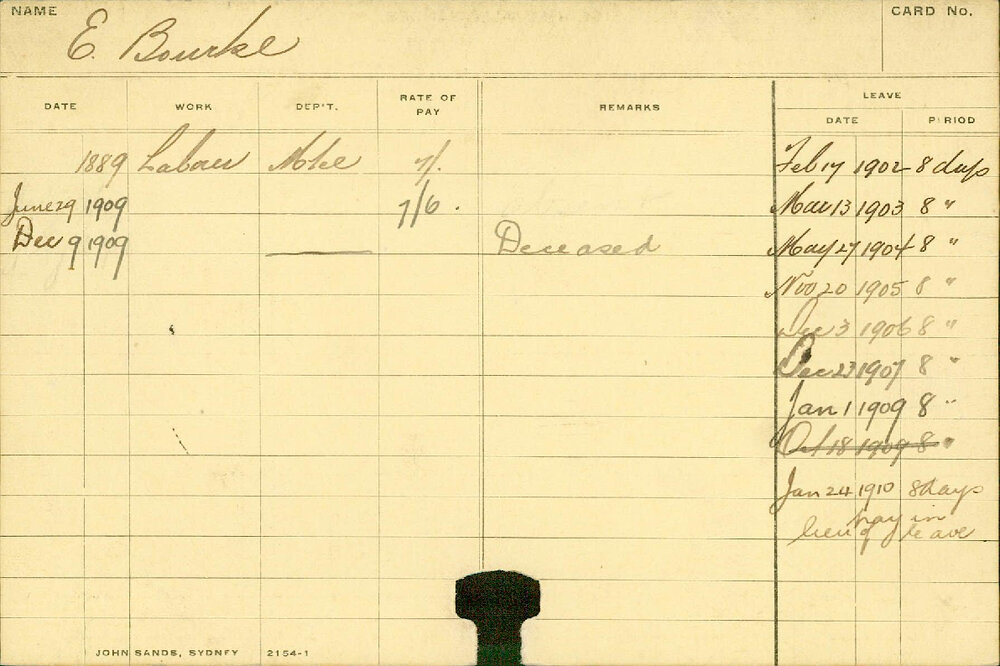 NAME E. Bourke CARD No.
DATE WORK DEP'T. RATE OF PAY REMARKS LEAVE
DATE PERIOD
1889 Labour 7/. Feb 17 1902 8 days
June 29 1909 7/6. Mar 13 1903 8 "
Dec 9 1909 Deceased May 27 1904 8 "
Nov 20 1905 8 "
Dec 3 1906 8 "
Dec 23 1907 8 "
Jan 1 1909 8 "
Oct 18 1909 8 "
Jan 24 1910 8 days
pay in
lieu of leave
JOHN SANDS, SYDNEY 2154-1